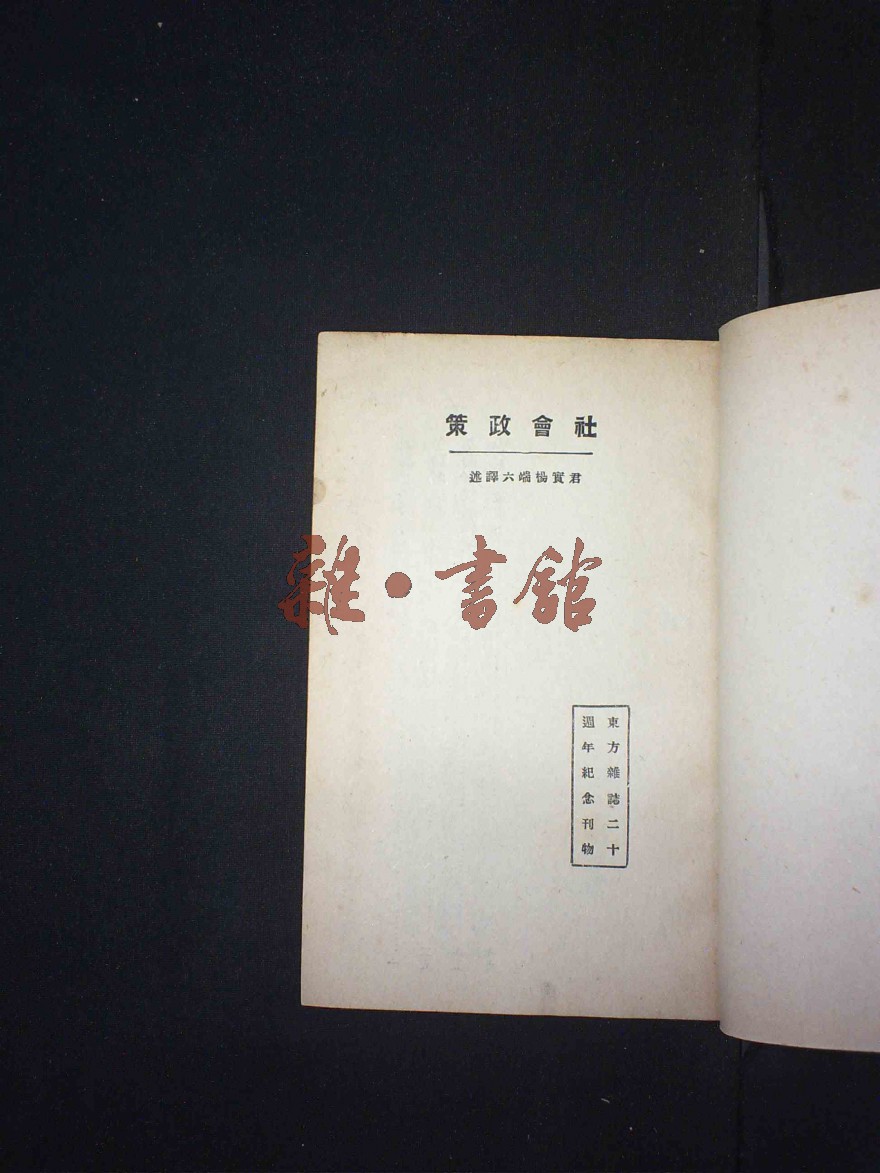 社會政策
君實楊端六譯述
雜·書館
東方雜誌二十
週年紀念刊物